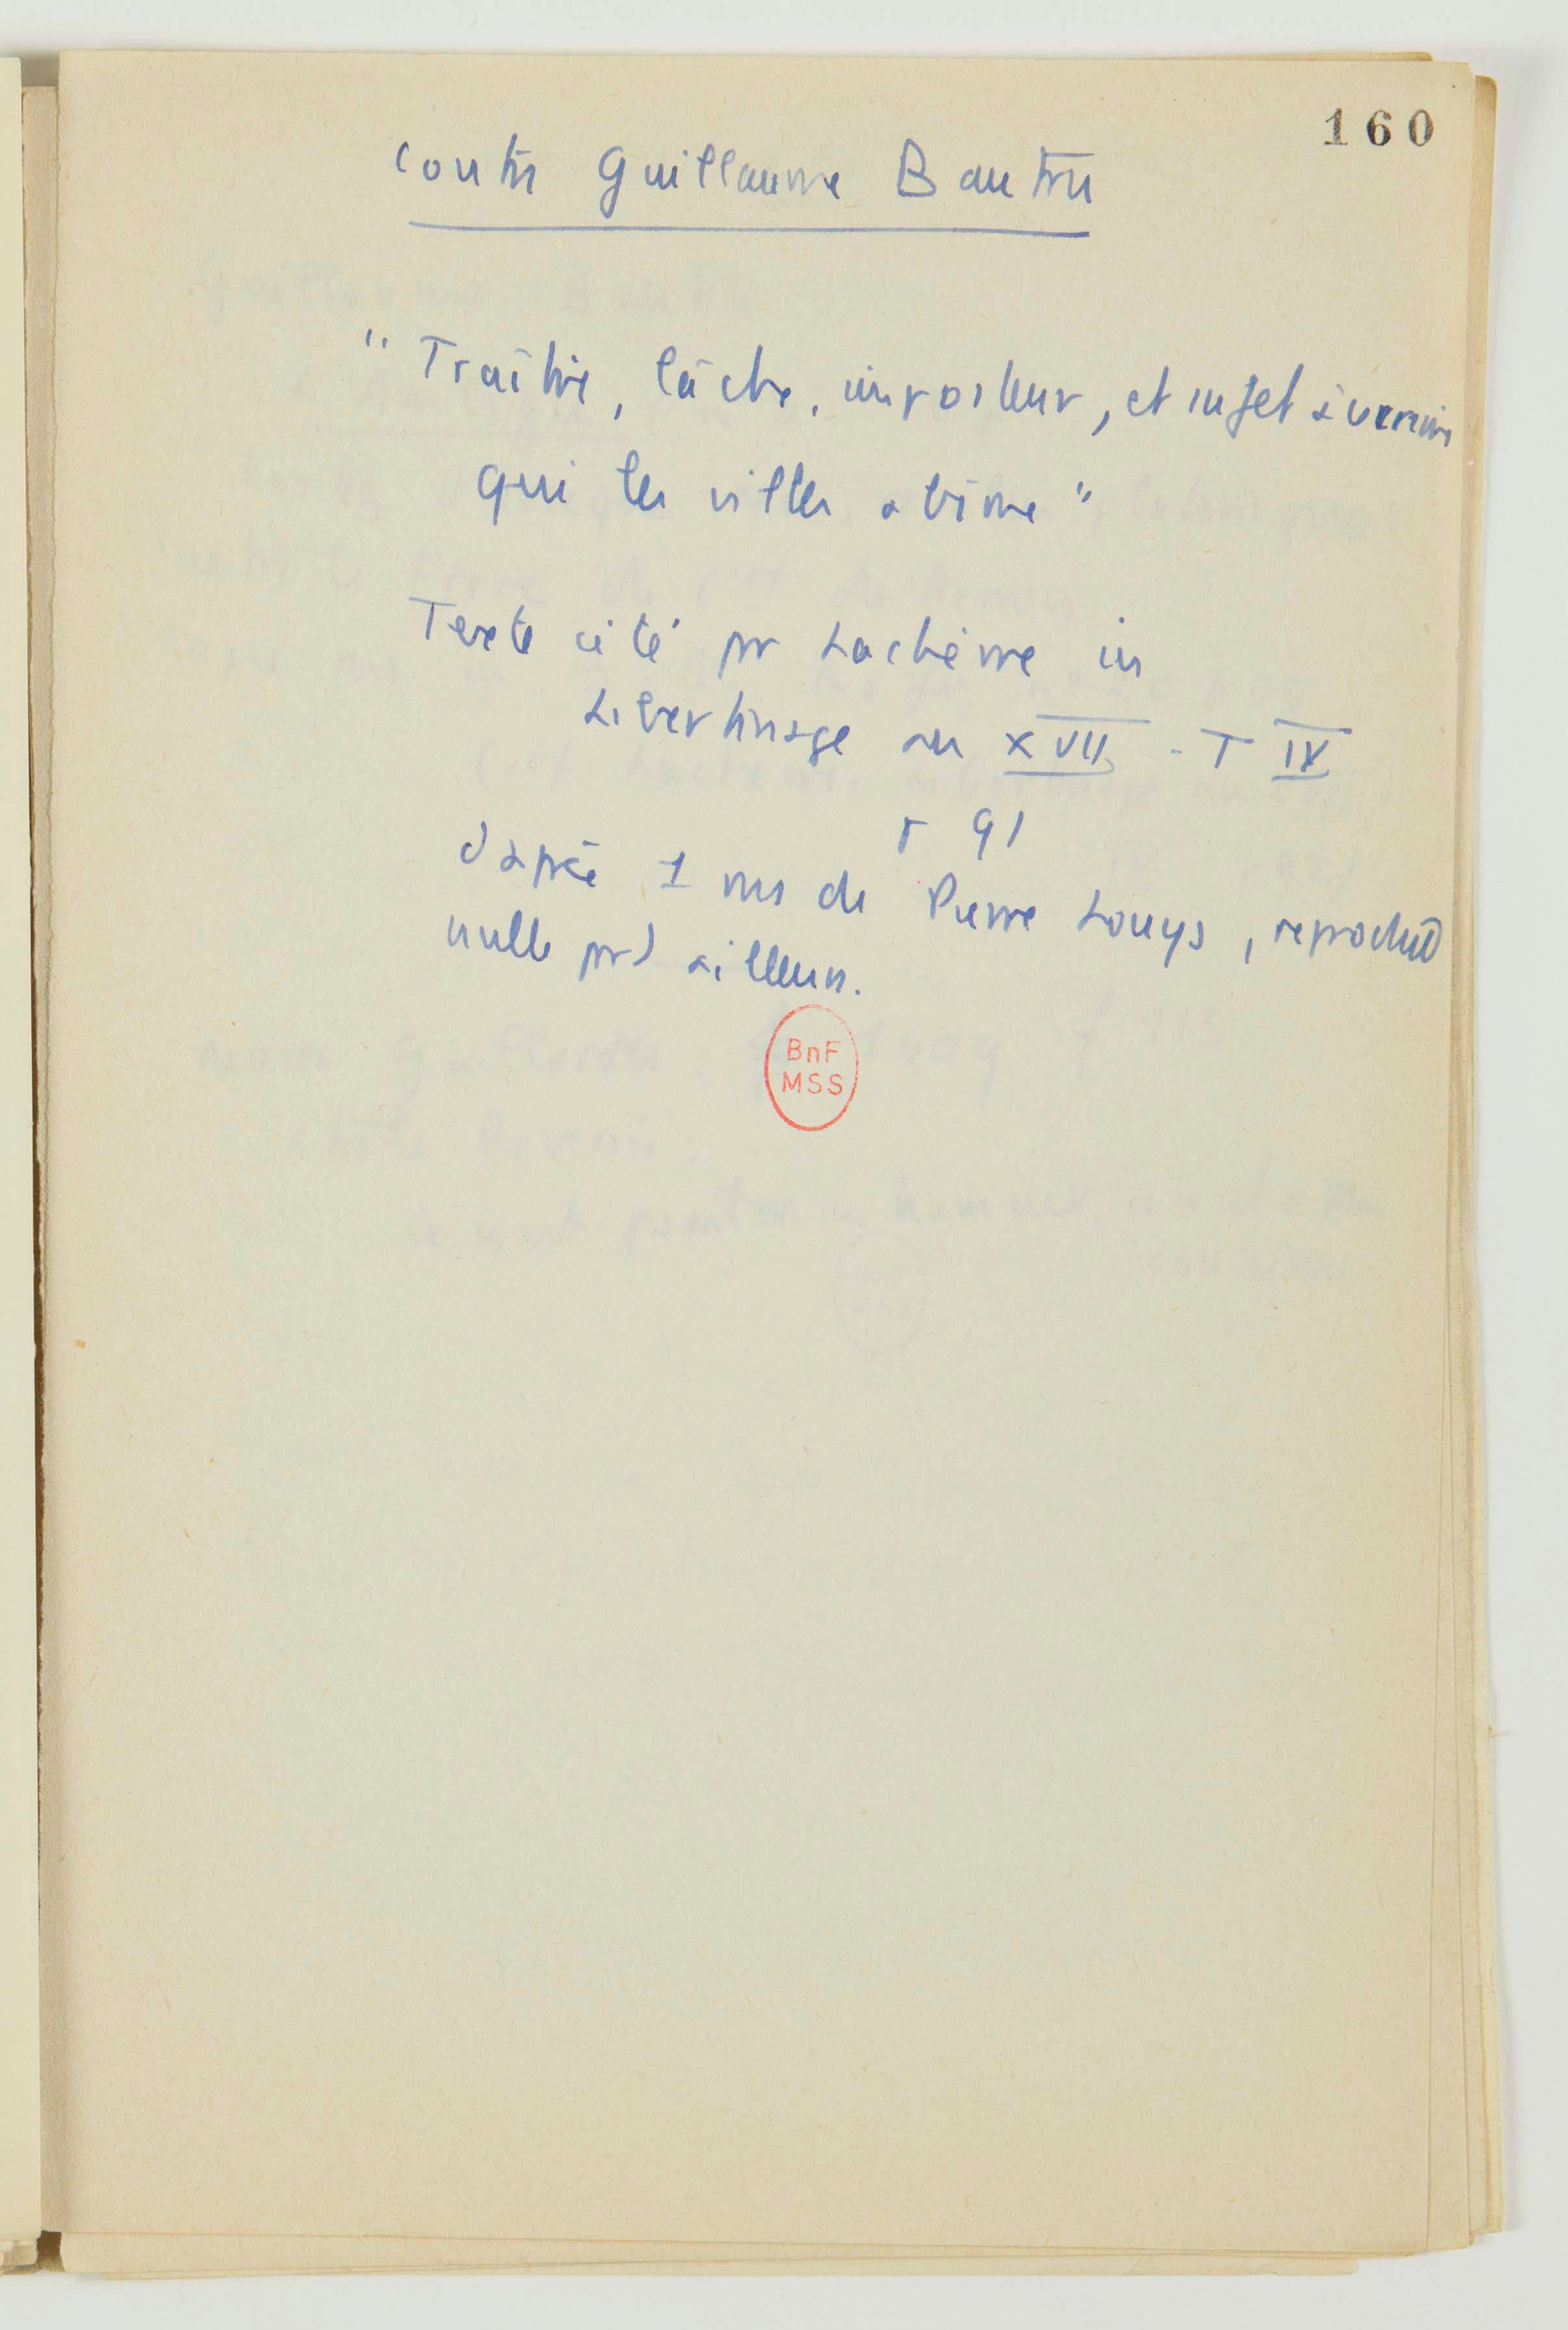 160
contre Guillaume Bautru
" Traître, lâche, imposteur, et sujet à venin
qui les villes abime "
Texte cité pr Lachèvre in
Libertinage au XVII - T IV
p 91
d'après 1 ms de Pierre Louys, reproduit
nulle prt ailleurs.
BnF
MSS